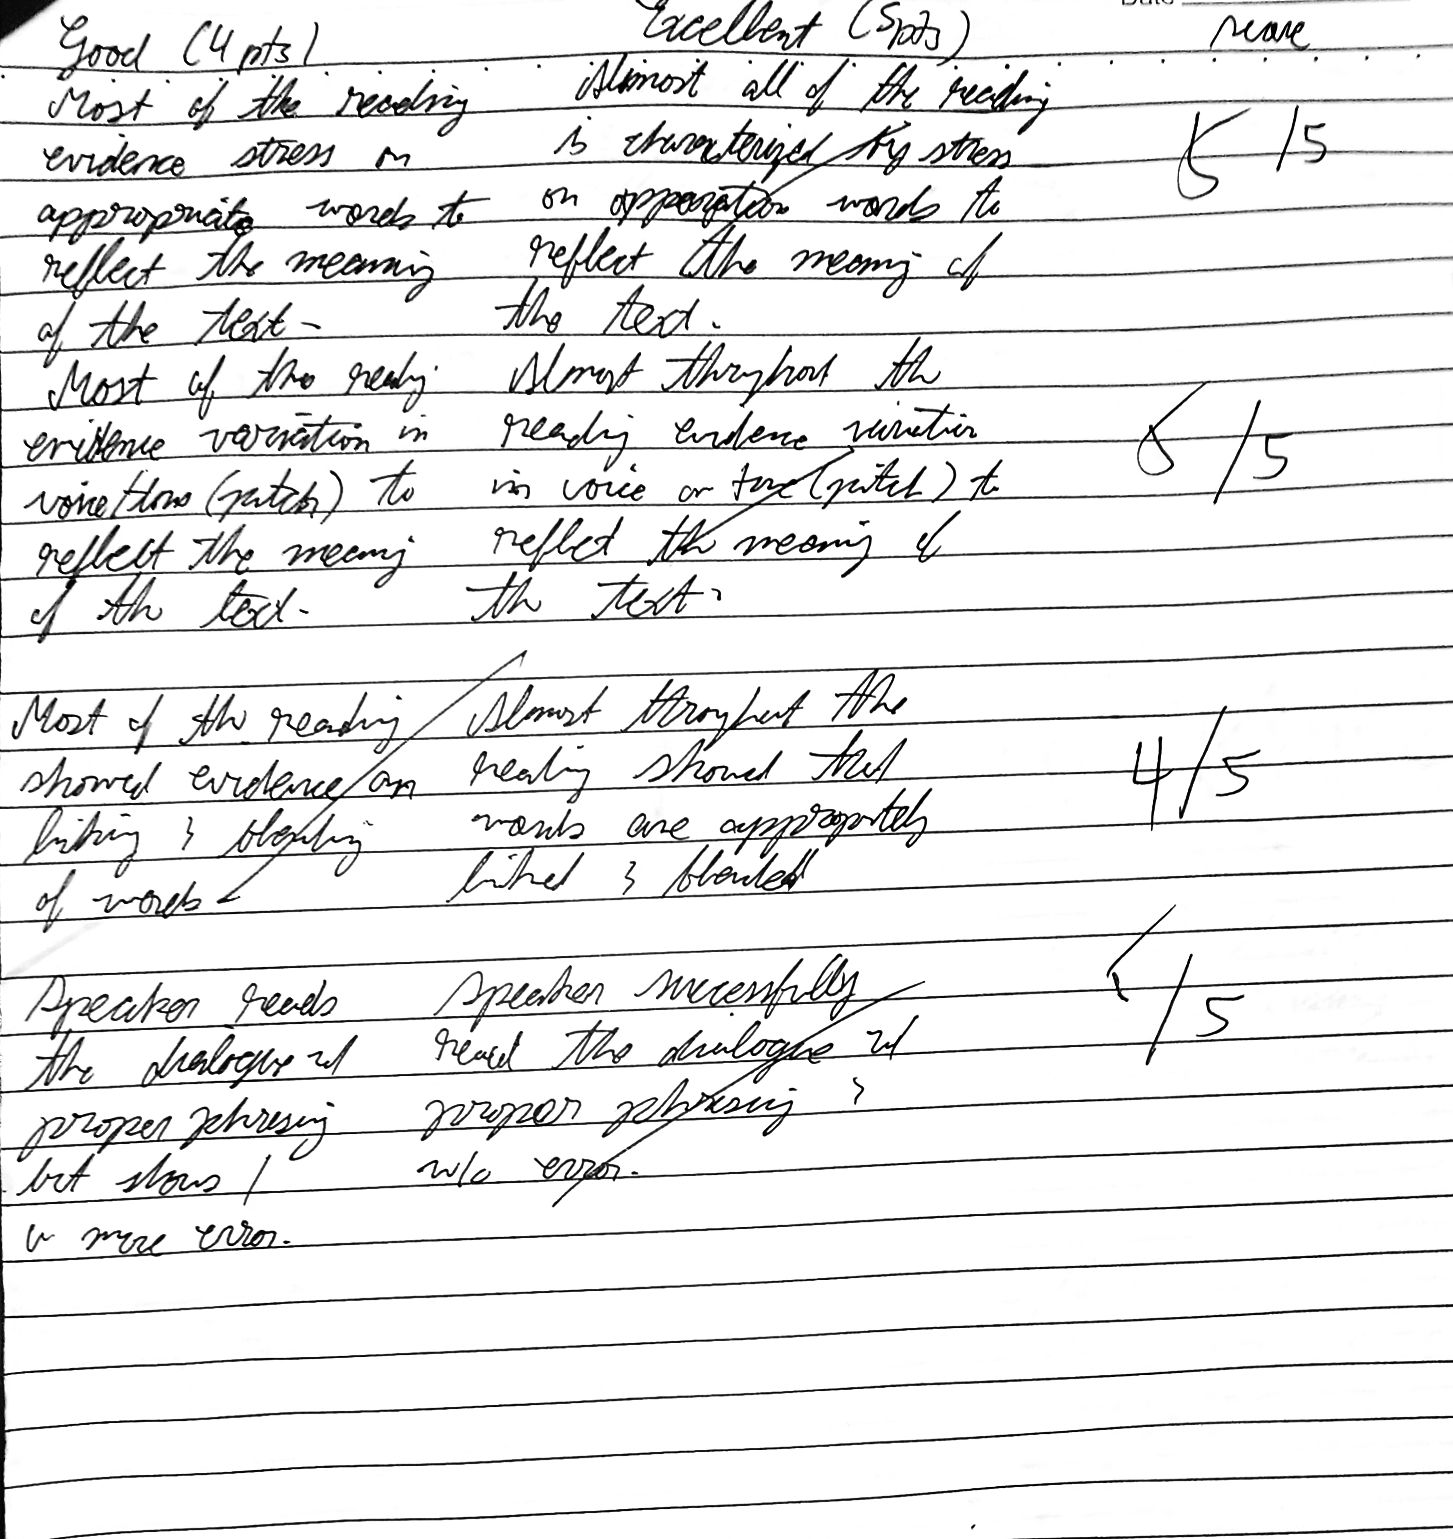 Good (4 pts)
Excellent (5pts)
score
Most of the reading
evidence stress on
appropriate words to
reflect the meaning
of the text-
Almost all of the reading
is characterized by stress
on words to
reflect the meaning of
the text.
5 /5
Most of the readg
evidence variation in
voice/tone (pitch) to
reflect the meaning
of the text-
Almost throughout the
reading evidence variation
in voice or tone (pitch) to
reflect the meaning of
the text.
5 /5
Most of the reading
showed evidence on
linking & blending
of words
Almost throughout the
reading showed that
words are appropriately
linked & blended
4/5
Speaker reads
the dialogue w/
proper phrasing
but shows 1
or more error.
Speaker successfully
read the dialogue w/
proper phrasing &
w/o error.
/5